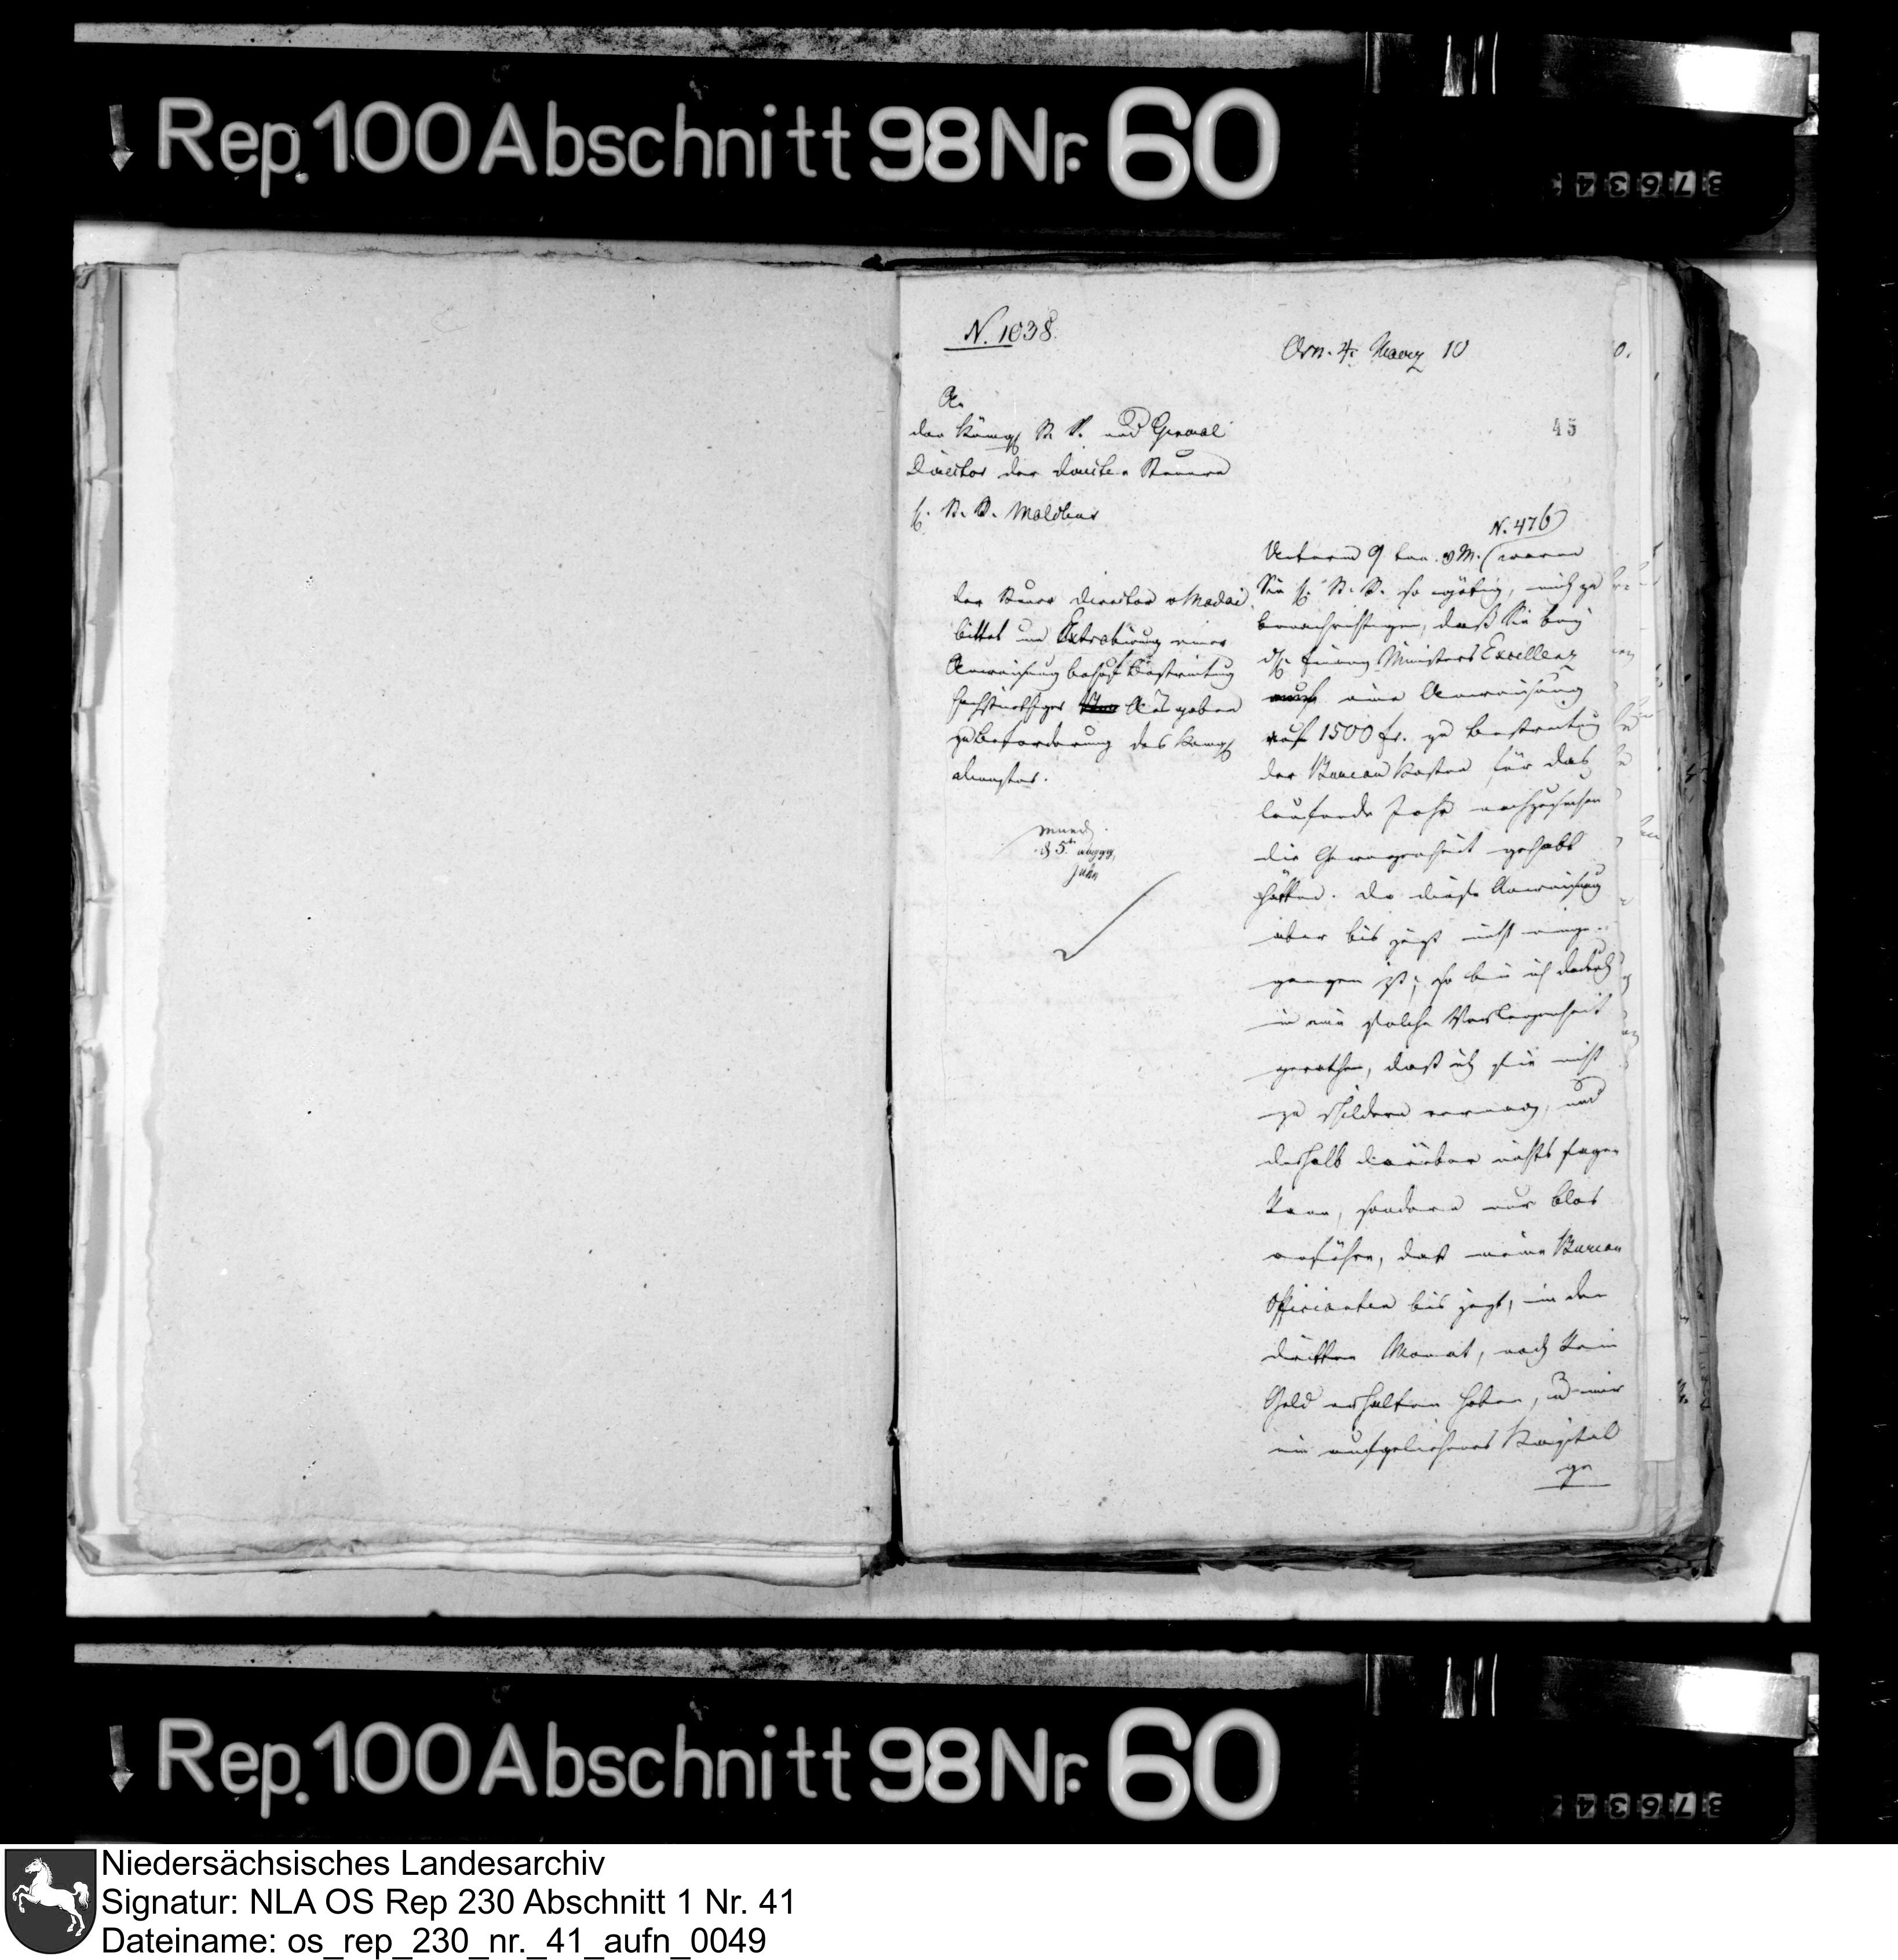 Rep. 100 Abschnitt 98 Nr. 60
N. 1038.
Osn. 4. Maerz 10
An
den Königl. St. R. und General
Director der directen Steuern
H. St. R. Malchus
45
der Steuer Director v Madai
bittet um Extrahirung einer
Anweisung behuf Bestreitung
höchstnöthiger Ausgaben
zu Beförderung des Königl
dienstes.
mund.
d 5. abgeg.
N. 476
Unterm 9 Jan. v M. waren
Sie H. St. R. so gütig, mich zu
benachrichtigen, daß Sie bey
des Finanz Ministers Excellenz
eine Anweisung
auf 1500 fr. zu Bestreitung
der Bureau Kosten für das
laufende Jahr nachzusuchen
die Gewogenheit gehabt
hätten. Da diese Anweisung
aber bis jetzt nicht einge-
gangen ist; so bin ich dadurch
in eine solche Verlegenheit
gerathen, daß ich sie nicht
zu schildern vermag, und
deshalb darüber nichts sagen
kann, sondern nur blos
anführe, daß meine Bureau
Officianten bis jetzt, in den
dritten Monat, noch kein
Geld erhalten haben, u mir
ein aufgeliehenes Kapital
ge
Rep. 100 Abschnitt 98 Nr. 60
Niedersächsisches Landesarchiv
Signatur: NLA OS Rep 230 Abschnitt 1 Nr. 41
Dateiname: os_rep_230_nr._41_aufn_0049